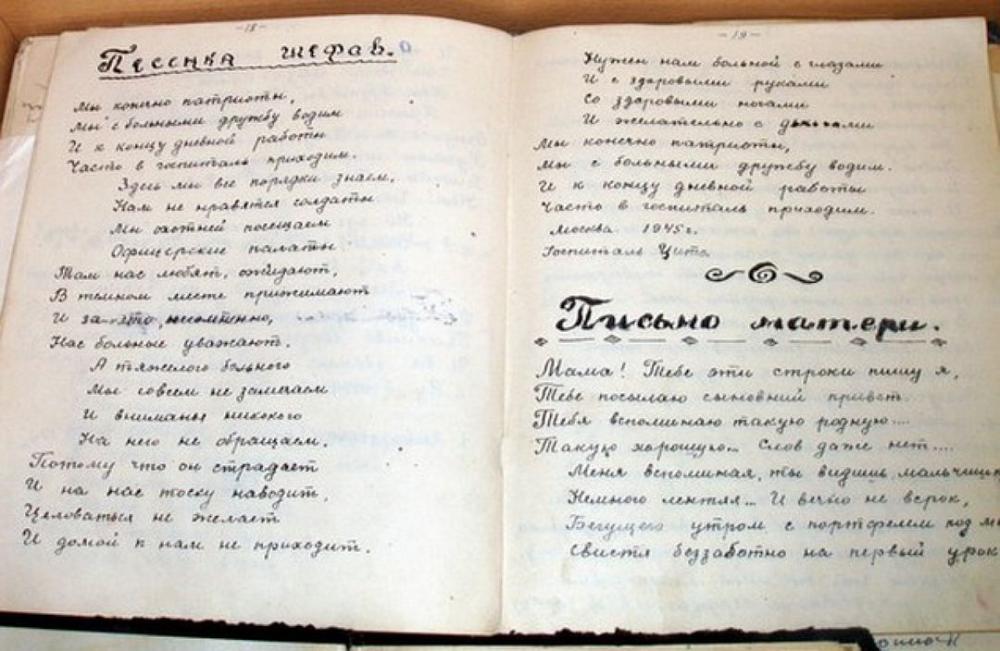 -18-
Песенка шефов.
Мы конечно патриоты,
Мы с больными дружбу водим
И к концу дневной работы
Часто в госпиталь приходим.
Здесь мы все порядки знаем,
Нам не нравятся солдаты
Мы охотней посещаем
Офицерские палаты.
Там нас любят, ожидают,
В темном месте прижимают
И за это, несомненно,
Нас больные уважают.
А тяжелого больного
Мы совсем не замечаем
И вниманья никокого
На него не обращаем.
Потому что он страдает
И на нас тоску наводит,
Целоваться не желает
И домой к нам не приходит.
-19-
Нужен нам больной с глазами
И с здоровыми руками
Со здоровыми ногами
И желательно с
Мы конечно патриоты,
Мы с больными дружбу водим.
И к концу дневной работы
Часто в госпиталь приходим.
Москва 1945 г.
Госпиталь Цито.
Письмо матери.
Мама! Тебе эти строки пишу я,
Тебе посылаю сыновний привет.
Тебя вспоминаю такую родную....
Такую хорошую... Слов даже нет....
Меня вспоминая, ты видишь мальчишку
Немного лентяя... И вечно не в срок,
Бегущего утром с портфелем под
Свистя беззаботно на первый урок